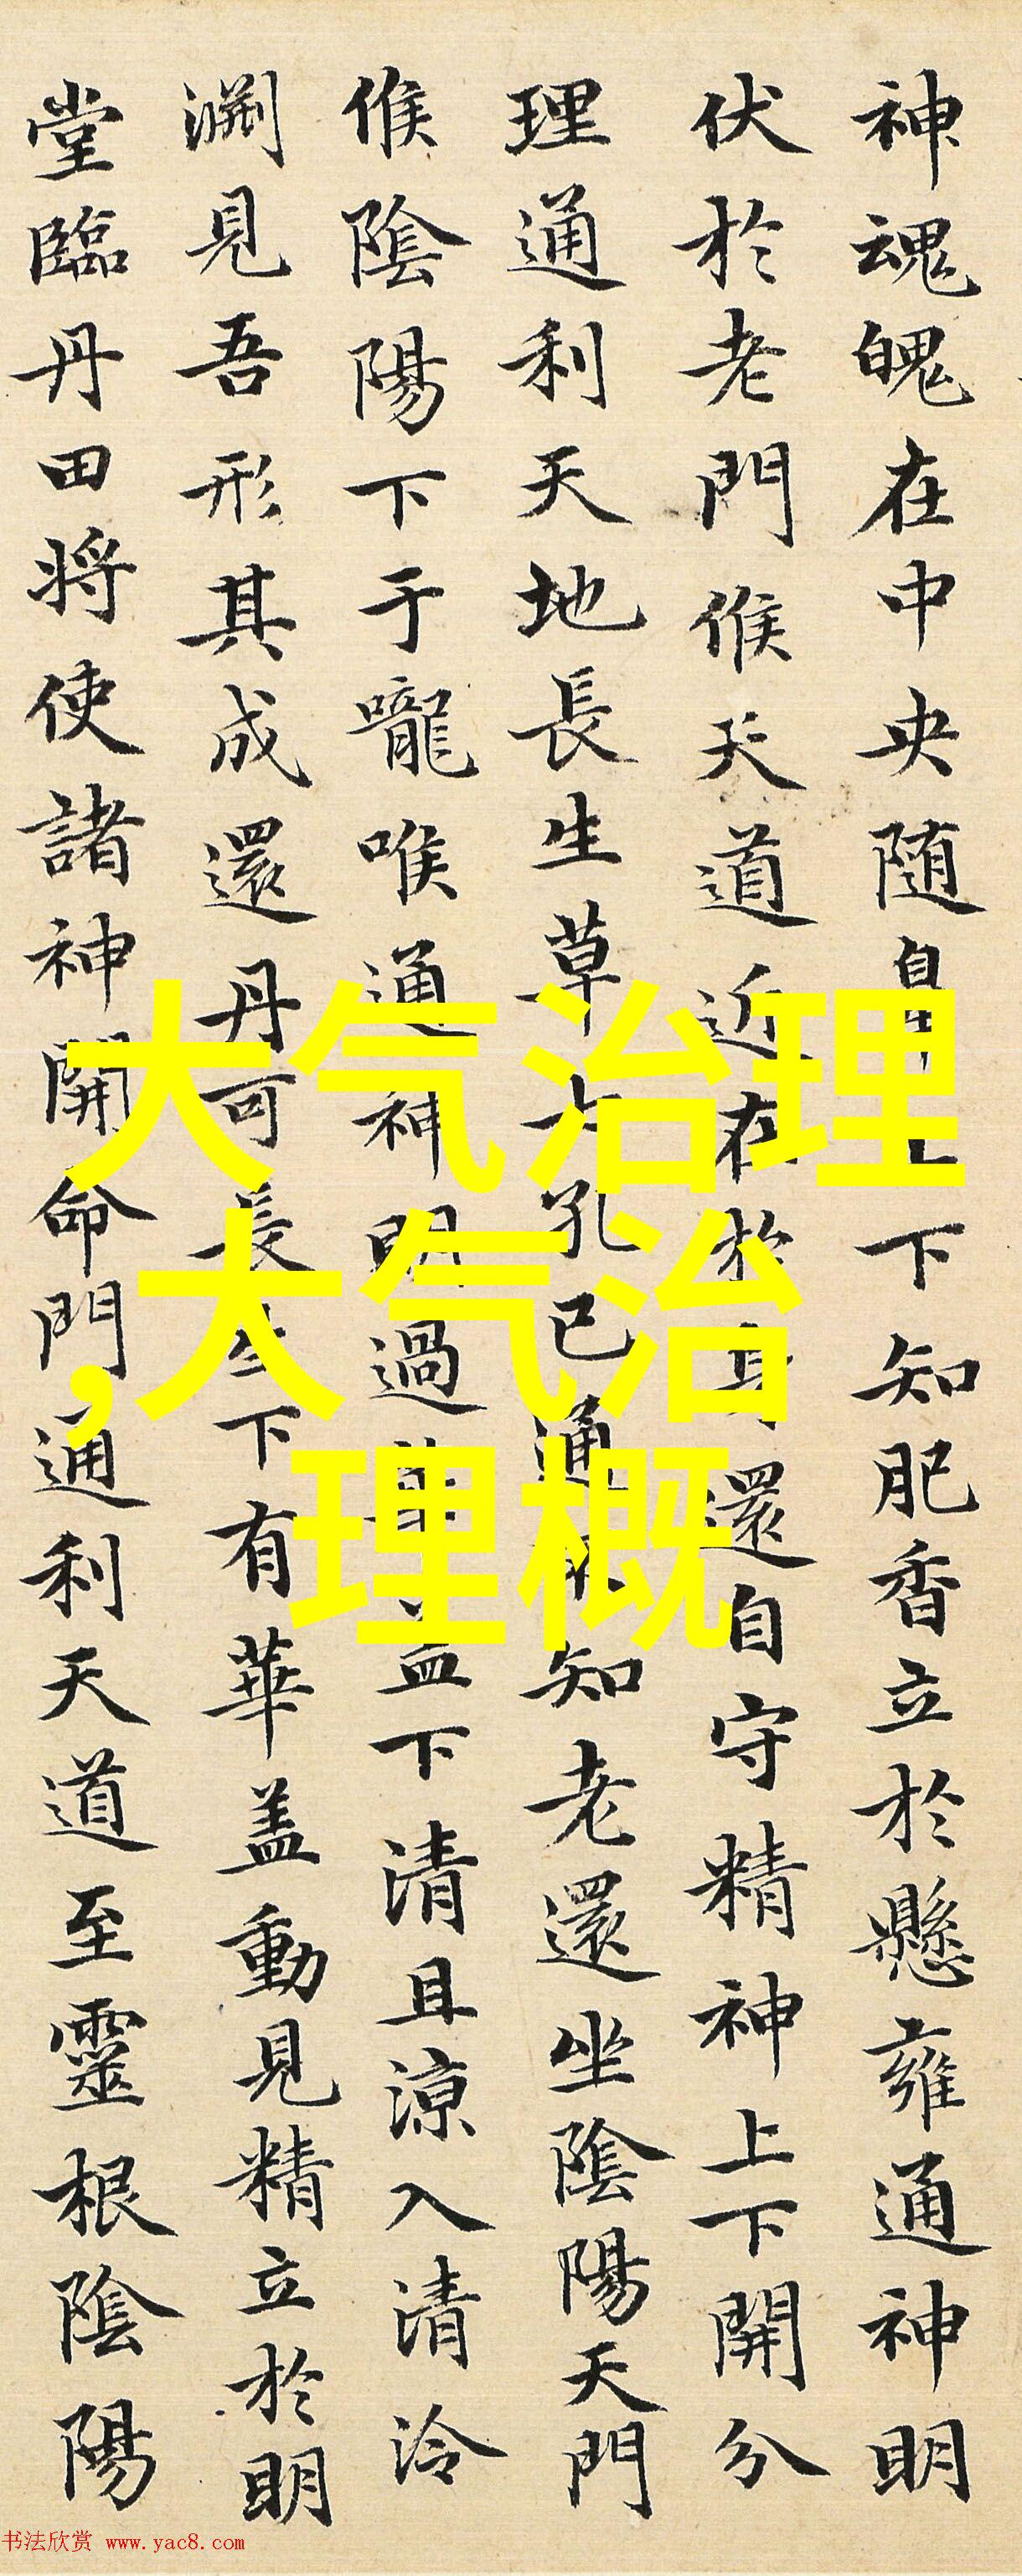 神魂魄在中央随鼻上下知肥香立於懸雍通神明
伏於老門候天道近在於身還自守精神上下開分
理通利天地長生草七孔已通不知老還坐陰陽天門
候陰陽下于嚨喉通神明過華蓋下清且涼入清泠
淵見吾形其成還丹可長生下有華盖動見精立於明
堂臨丹田将使諸神開命門通利天道至靈根陰陽
大气治理
,大气治
理概
书法欣赏 www.yac8.com